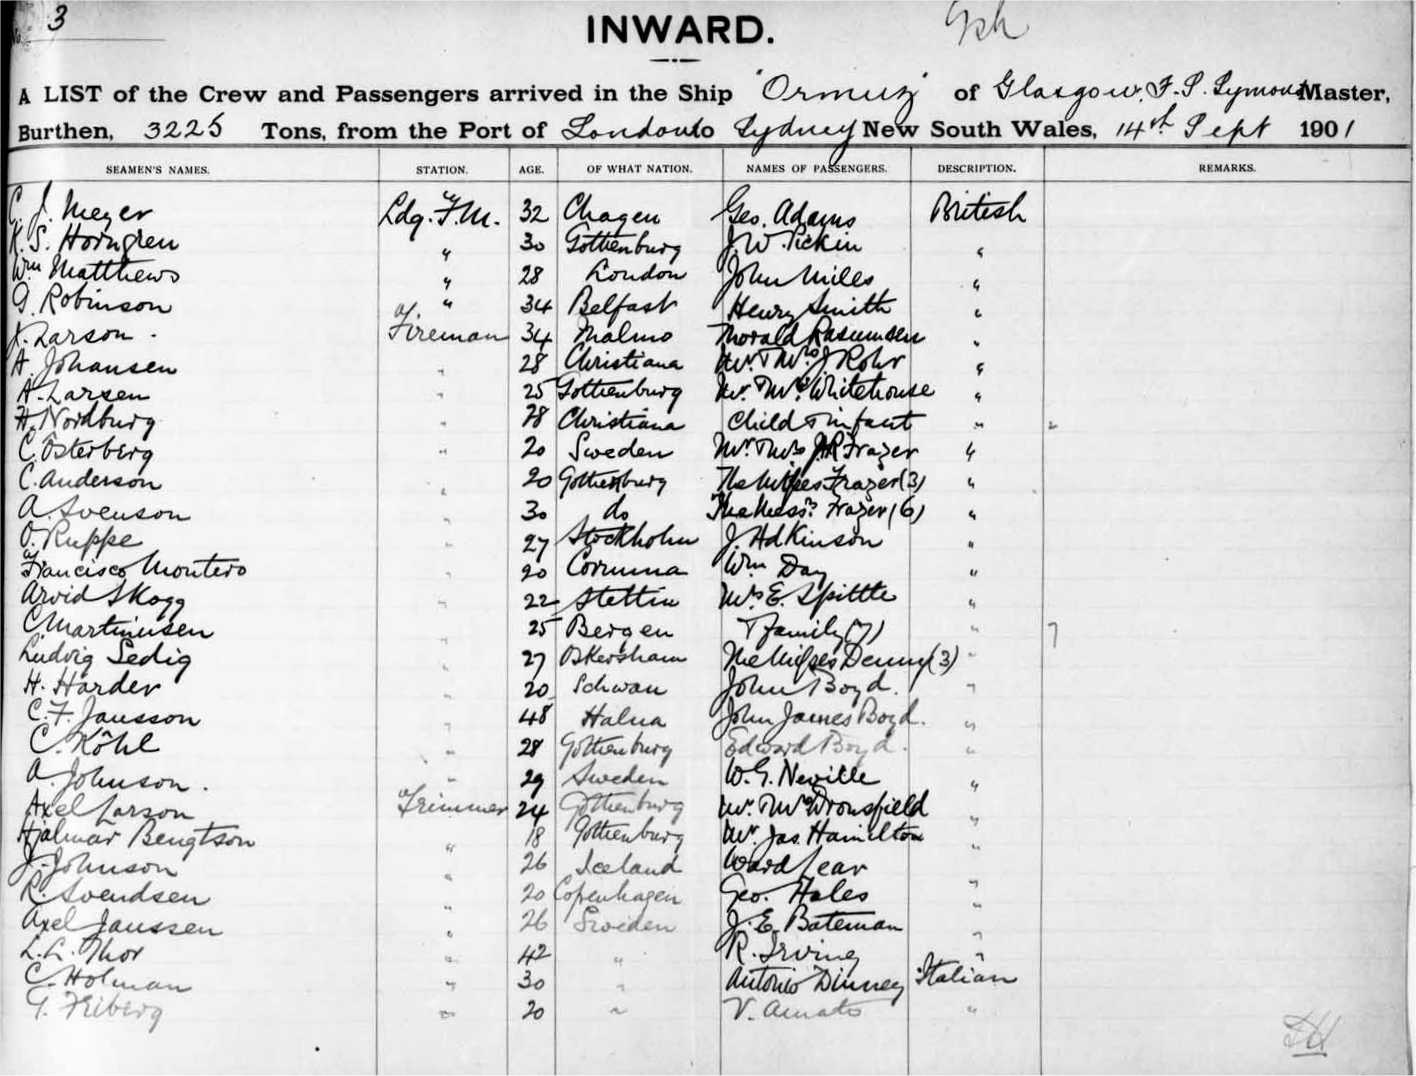 No. 3
INWARD.
A LIST of the Crew and Passengers arrived in the Ship "Ormuz" of Glasgow, F. S. Symons Master,
Burthen, 3225 Tons, from the Port of London to Sydney New South Wales, 14th Sept 1901
SEAMEN'S NAMES. STATION. AGE. OF WHAT NATION. NAMES OF PASSENGERS. DESCRIPTION. REMARKS.
C. J. Meyer Ldg. F.M. 32 Chagen Geo. Adams British
K. S. Horngren " 30 Gothenburg J. W. Pickin "
Wm Matthews " 28 London John Miles "
G. Robinson " 34 Belfast Henry Smith "
J. Larson . Fireman 34 Malmo Thorald Rasumsen "
A. Johansen " 28 Christiana Mr. & Mrs J. Rohr "
A. Larsen " 25 Gothenburg Mr. & Mrs Whitehouse "
H. Nordburg " 28 Christiana Child & infant " 2
C. Osterberg " 20 Sweden Mr. & Mrs J. R. Frazer "
C. Anderson " 20 Gothenburg The Misses Frazer (3) "
A. Svenson " 30 do The Messrs Frazer (6) "
O. Ruppe " 27 Stockholm J. Hdkinson "
Francisco Montero " 20 Corunna Wm Day "
Arvid Skogg " 22 Stettin Mrs E. Spittle "
C. Martinusen " 25 Bergen & family (7) " 7
Ludvig Sedig " 27 Oskersham The Misses Denny (3) "
H. Harder " 20 Schwan John Boyd. "
C. F. Jansson " 48 Halna John James Boyd. "
C. Köhl " 28 Gothenburg Edward Boyd. "
A. Johnson. " 29 Sweden W. G. Neville "
Axel Larson Trimmer 24 Gothenburg Mr. & Mrs Dronsfield "
Hjalmar Bengtson " 18 Gothenburg Mr Jas. Hamilton "
J. Johnson " 26 Iceland Ward Lear
R. Svendsen " 20 Copenhagen Geo. Hales "
Axel Janssen " 26 Sweden J. E. Bateman "
L. L. Thor " 42 " R. Irving "
C. Holman " 30 " Antonio Dinney Italian
G. Friberg " 20 " V. Amato "